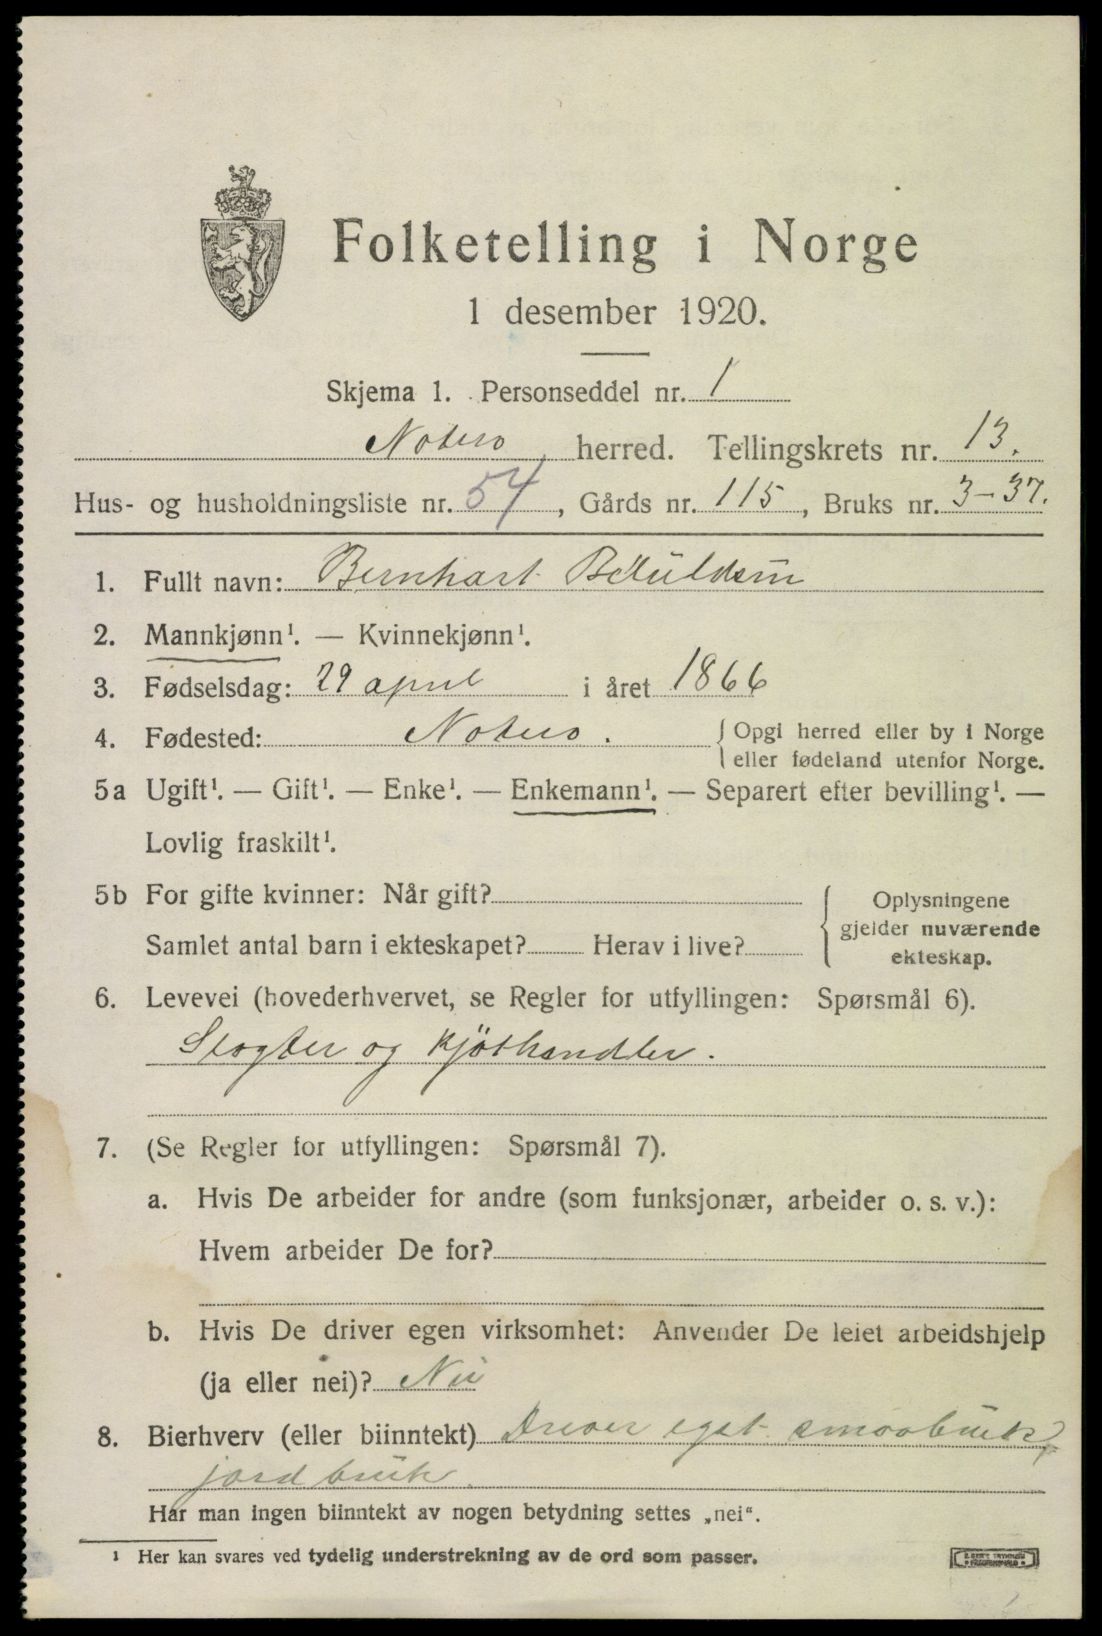 Folketelling i Norge
1 desember 1920.
Skjema 1. Personseddel nr. 1
Notero herred. Tellingskrets nr. 13.
Hus- og husholdningsliste nr. 54, Gårds nr. 115, Bruks nr. 3-37.
1. Fullt navn: Bernhart
2. Mannkjønn¹. — Kvinnekjønn¹.
3. Fødselsdag: 29 april i året 1866
4. Fødested: Notero. { Opgi herred eller by i Norge
eller fødeland utenfor Norge.
5a Ugift¹. — Gift¹. — Enke¹. — Enkemann¹. — Separert efter bevilling¹. —
Lovlig fraskilt¹.
5b For gifte kvinner: Når gift?
Samlet antal barn i ekteskapet? Herav i live?
{ Oplysningene
gjelder nuværende
ekteskap.
6. Levevei (hovederhvervet, se Regler for utfyllingen: Spørsmål 6).
Slogter og kjöthandler.
7. (Se Regler for utfyllingen: Spørsmål 7).
a. Hvis De arbeider for andre (som funksjonær, arbeider o. s. v.):
Hvem arbeider De for?
b. Hvis De driver egen virksomhet: Anvender De leiet arbeidshjelp
(ja eller nei)? Nei
8. Bierhverv (eller biinntekt) Driver eget smaabruk,
jordbruk.
Har man ingen biinntekt av nogen betydning settes „nei“.
¹ Her kan svares ved tydelig understrekning av de ord som passer.